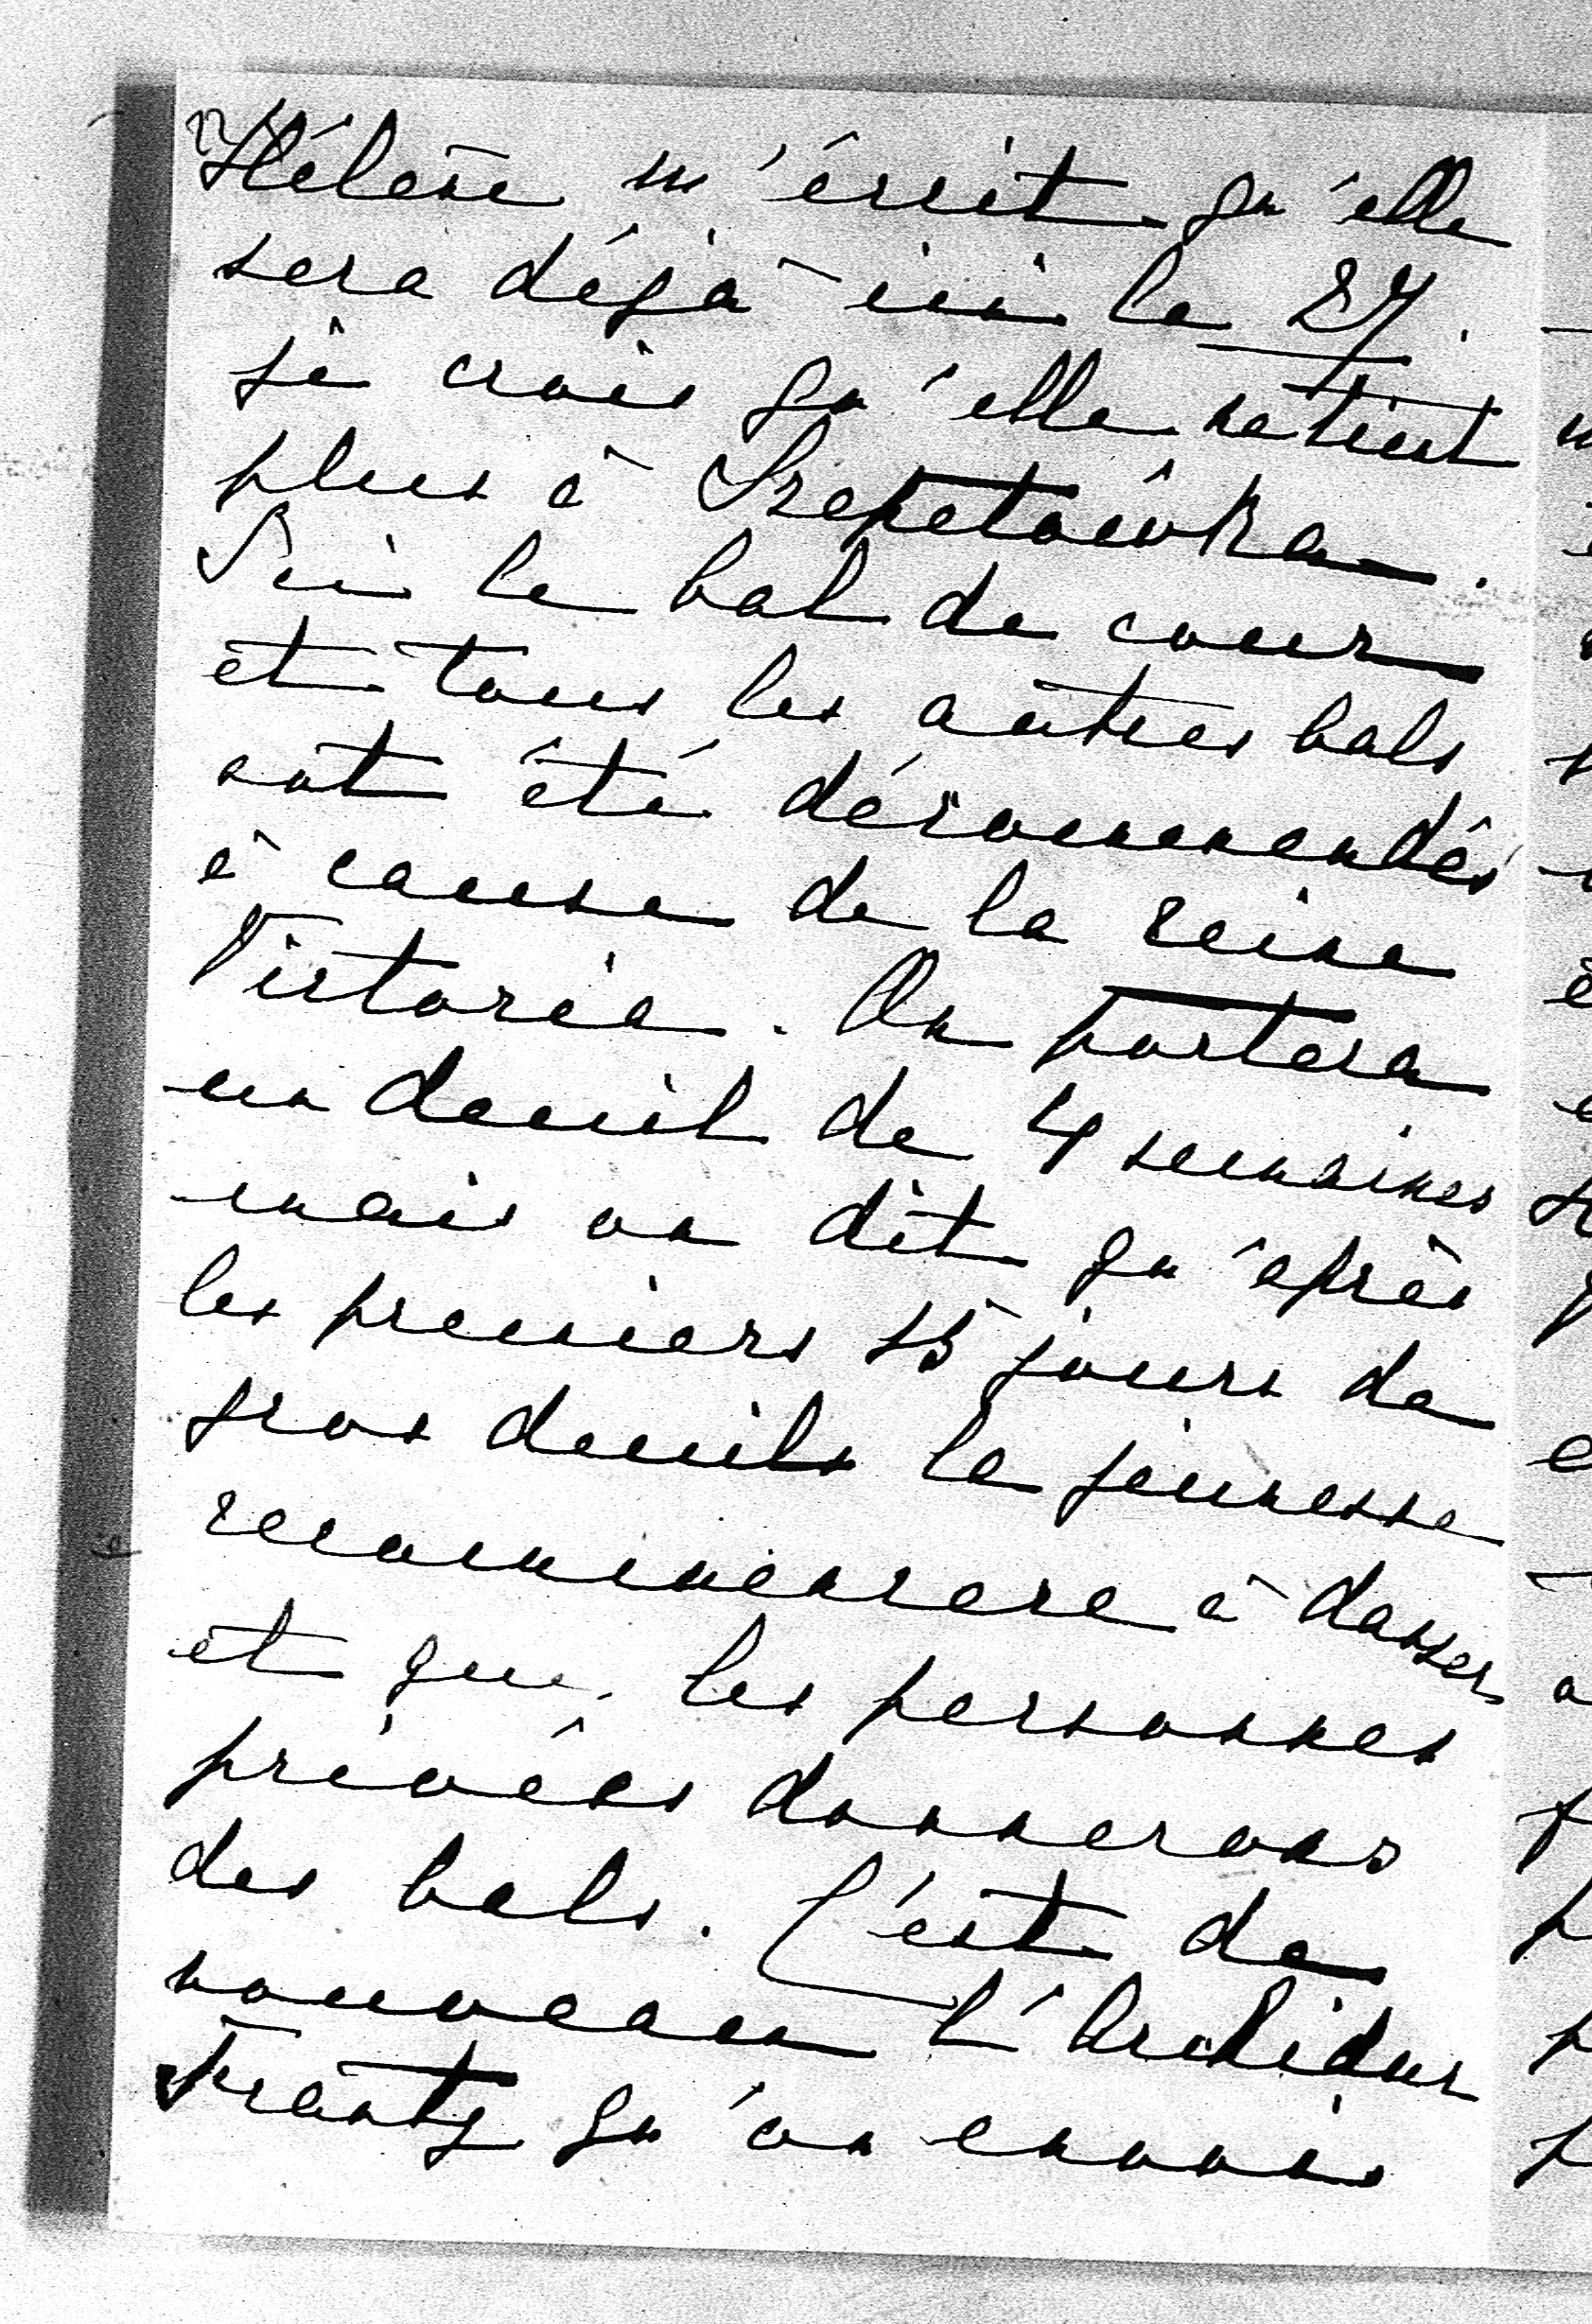 Hélène m'écrit qu'elle
sera déjà ici le 27.
je crois qu'elle ne tient
plus à Szepetówka.
Ici le bal de cour
et tous les autres bals
ont été décommandés
à cause de la reine
Victoria. On portera
un deuil de 4 semaines
mais on dit qu'après
les premiers 15 jours de
gros deuils la jeunesse
recommencera à danser
et que les personnes
privées donnerons
des bals. C'est de
nouveau l'Archiduc
Frantz qu'on envoie